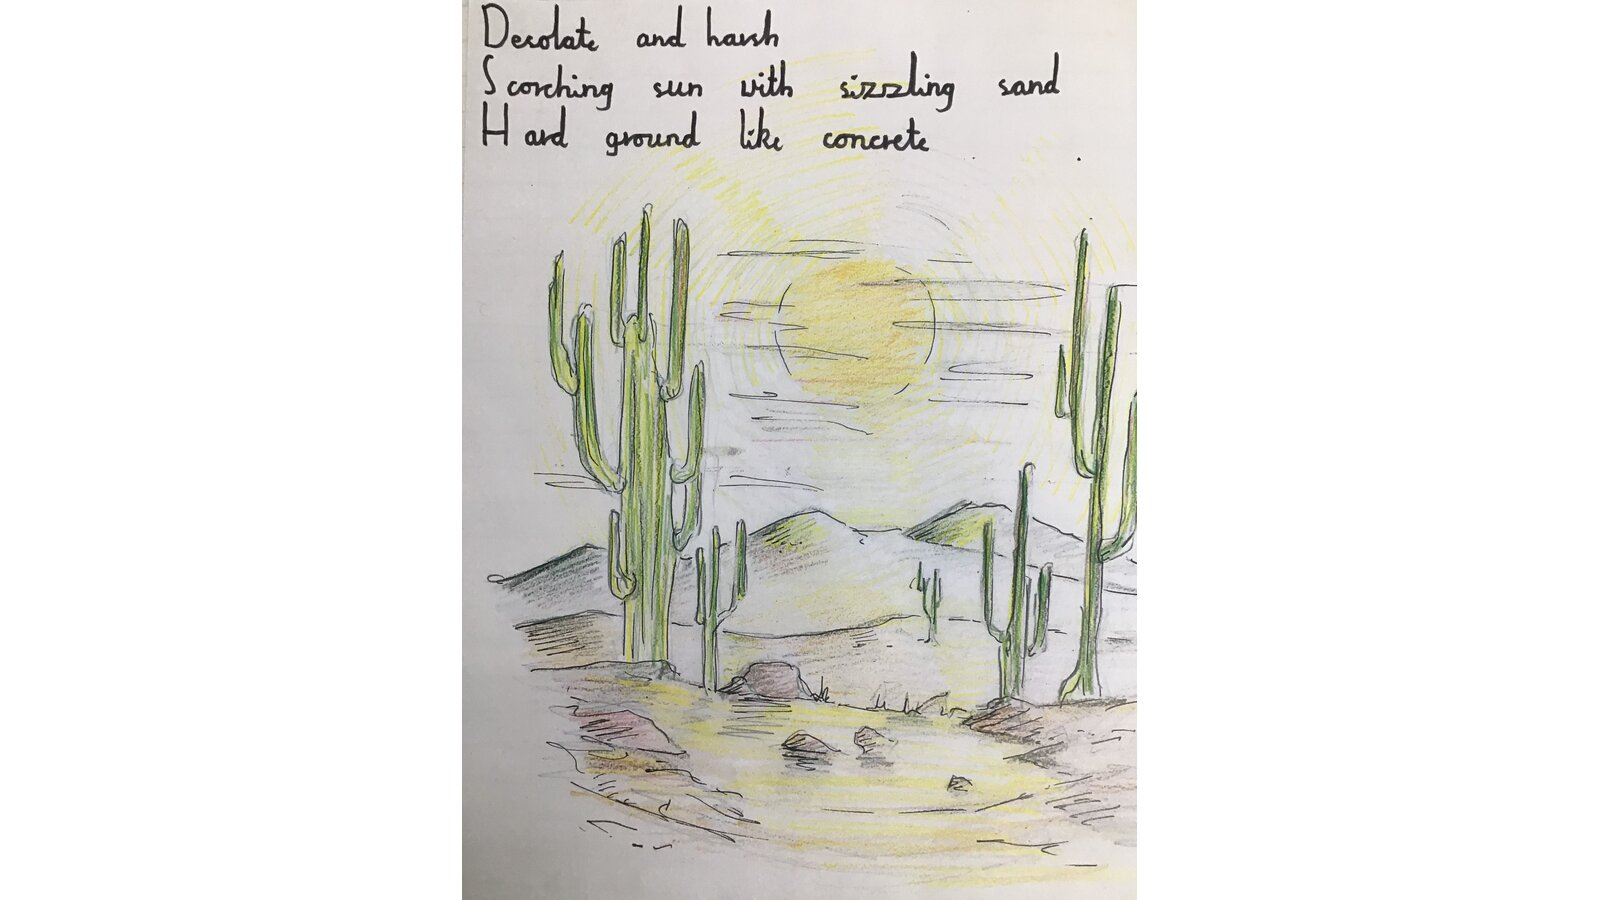 Desolate and harsh
Scorching sun with sizzling sand
Hard ground like concrete